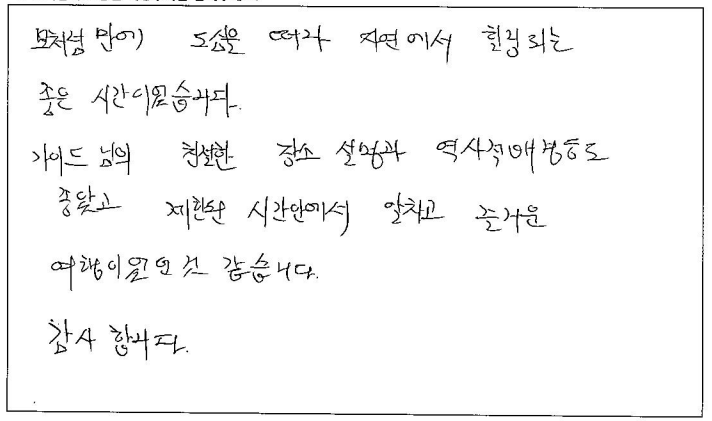 모처럼 만에 도심을 떠나 자연에서 힐링되는
좋은 시간이었습니다.
가이드 님의 친절한 장소 설명과 역사적배경등도
좋았고 제한된 시간안에서 알차고 즐거운
여행이었던 것 같습니다.
감사 합니다.